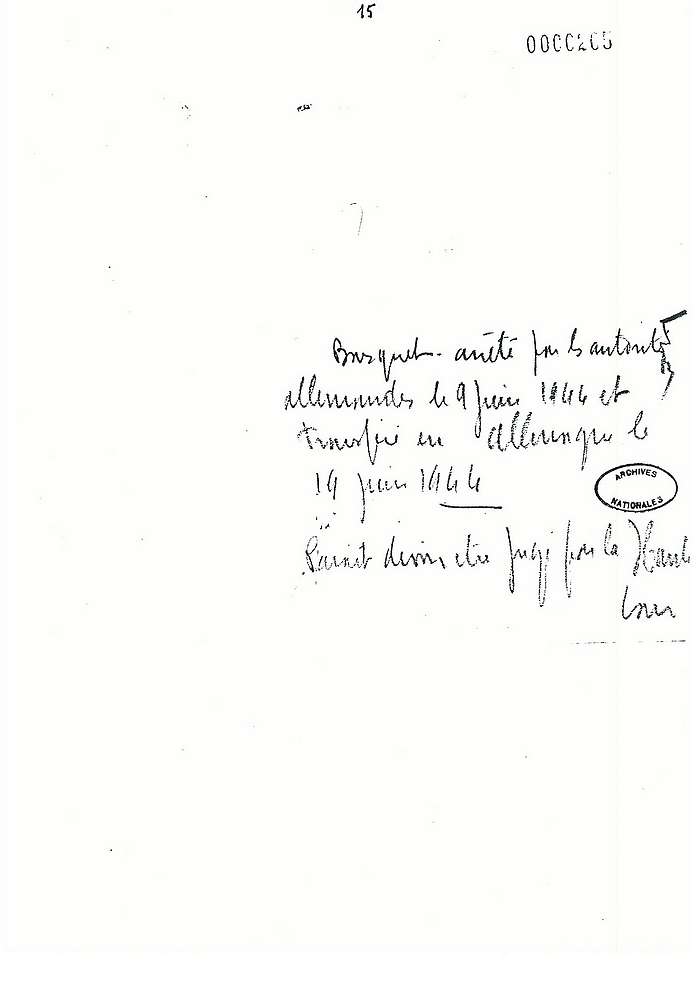 15
0000205
Bousquet - arrêté par les autorités
allemandes le 9 juin 1944 et
transféré en Allemagne le
19 juin 1944
ARCHIVES
NATIONALES
devoir être jugé par la Haute
Cour